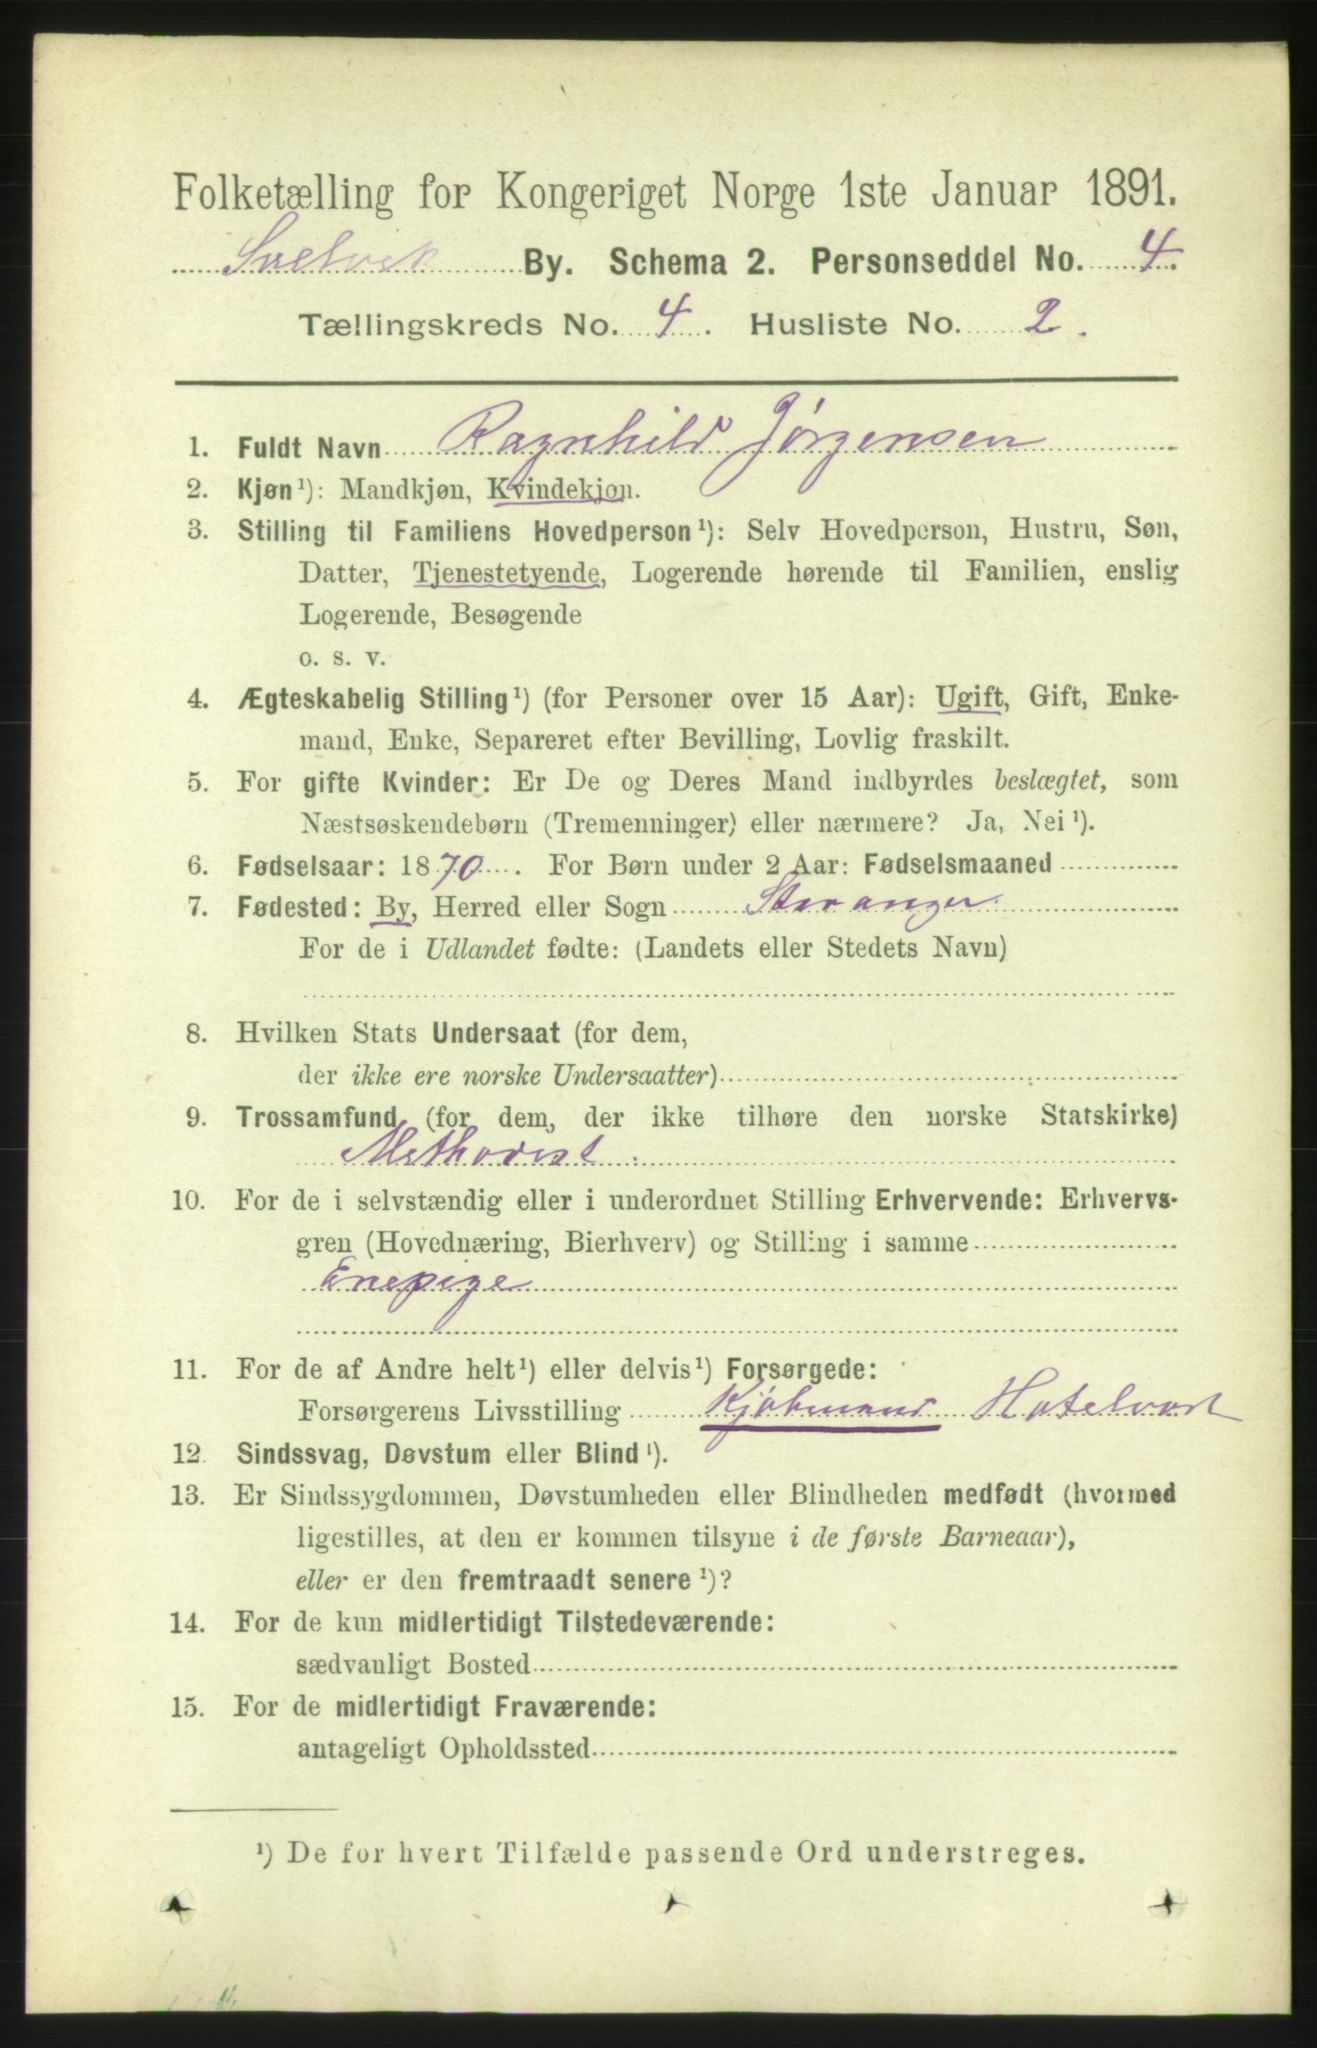 Folketælling for Kongeriget Norge 1ste Januar 1891.
Svelvik By. Schema 2. Personseddel No. 4.
Tællingskreds No. 4. Husliste No. 2.
1. Fuldt Navn Ragnhild Jørgensen
2. Kjøn¹): Mandkjøn, Kvindekjøn.
3. Stilling til Familiens Hovedperson¹): Selv Hovedperson, Hustru, Søn,
Datter, Tjenestetyende, Logerende hørende til Familien, enslig
Logerende, Besøgende
o. s. v.
4. Ægteskabelig Stilling¹) (for Personer over 15 Aar): Ugift, Gift, Enke-
mand, Enke, Separeret efter Bevilling, Lovlig fraskilt.
5. For gifte Kvinder: Er De og Deres Mand indbyrdes beslægtet, som
Næstsøskendebørn (Tremenninger) eller nærmere? Ja, Nei¹).
6. Fødselsaar: 1870. For Børn under 2 Aar: Fødselsmaaned
7. Fødested: By, Herred eller Sogn Stavanger
For de i Udlandet fødte: (Landets eller Stedets Navn)
8. Hvilken Stats Undersaat (for dem,
der ikke ere norske Undersaatter)
9. Trossamfund (for dem, der ikke tilhøre den norske Statskirke)
Methodist.
10. For de i selvstændig eller i underordnet Stilling Erhvervende: Erhvervs-
gren (Hovednæring, Bierhverv) og Stilling i samme
Enepige
11. For de af Andre helt¹) eller delvis¹) Forsørgede:
Forsørgerens Livsstilling Kjøbmand Hotelvært
12. Sindssvag, Døvstum eller Blind¹).
13. Er Sindssygdommen, Døvstumheden eller Blindheden medfødt (hvormed
ligestilles, at den er kommen tilsyne i de første Barneaar),
eller er den fremtraadt senere¹)?
14. For de kun midlertidigt Tilstedeværende:
sædvanligt Bosted
15. For de midlertidigt Fraværende:
antageligt Opholdssted
¹) De for hvert Tilfælde passende Ord understreges.